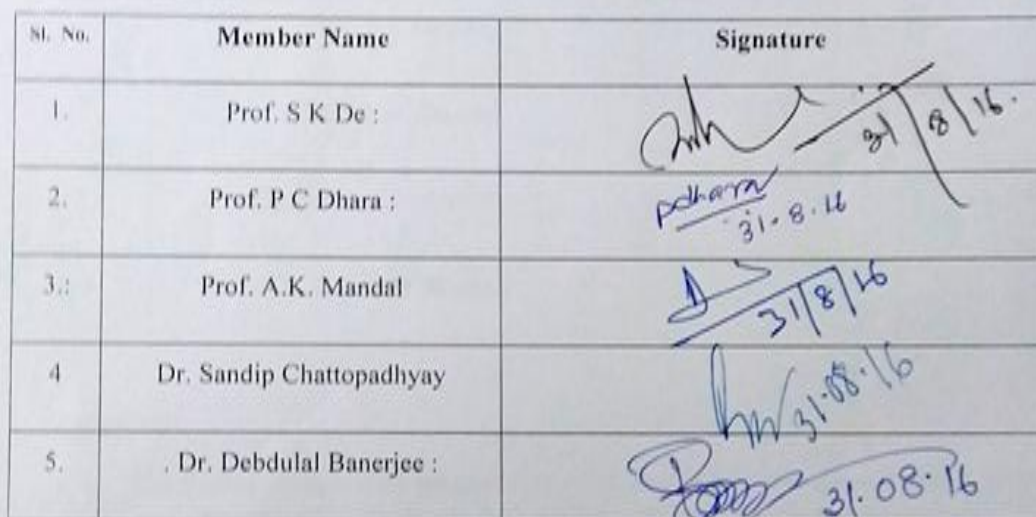 Sl. No. Member Name Signature
1. Prof. S K De : 31/8/16.
2. Prof. P C Dhara : pdhara
31.8.16
3.: Prof. A.K. Mandal 31/8/16
4 Dr. Sandip Chattopadhyay 31.08.16
5. . Dr. Debdulal Banerjee : 31.08.16